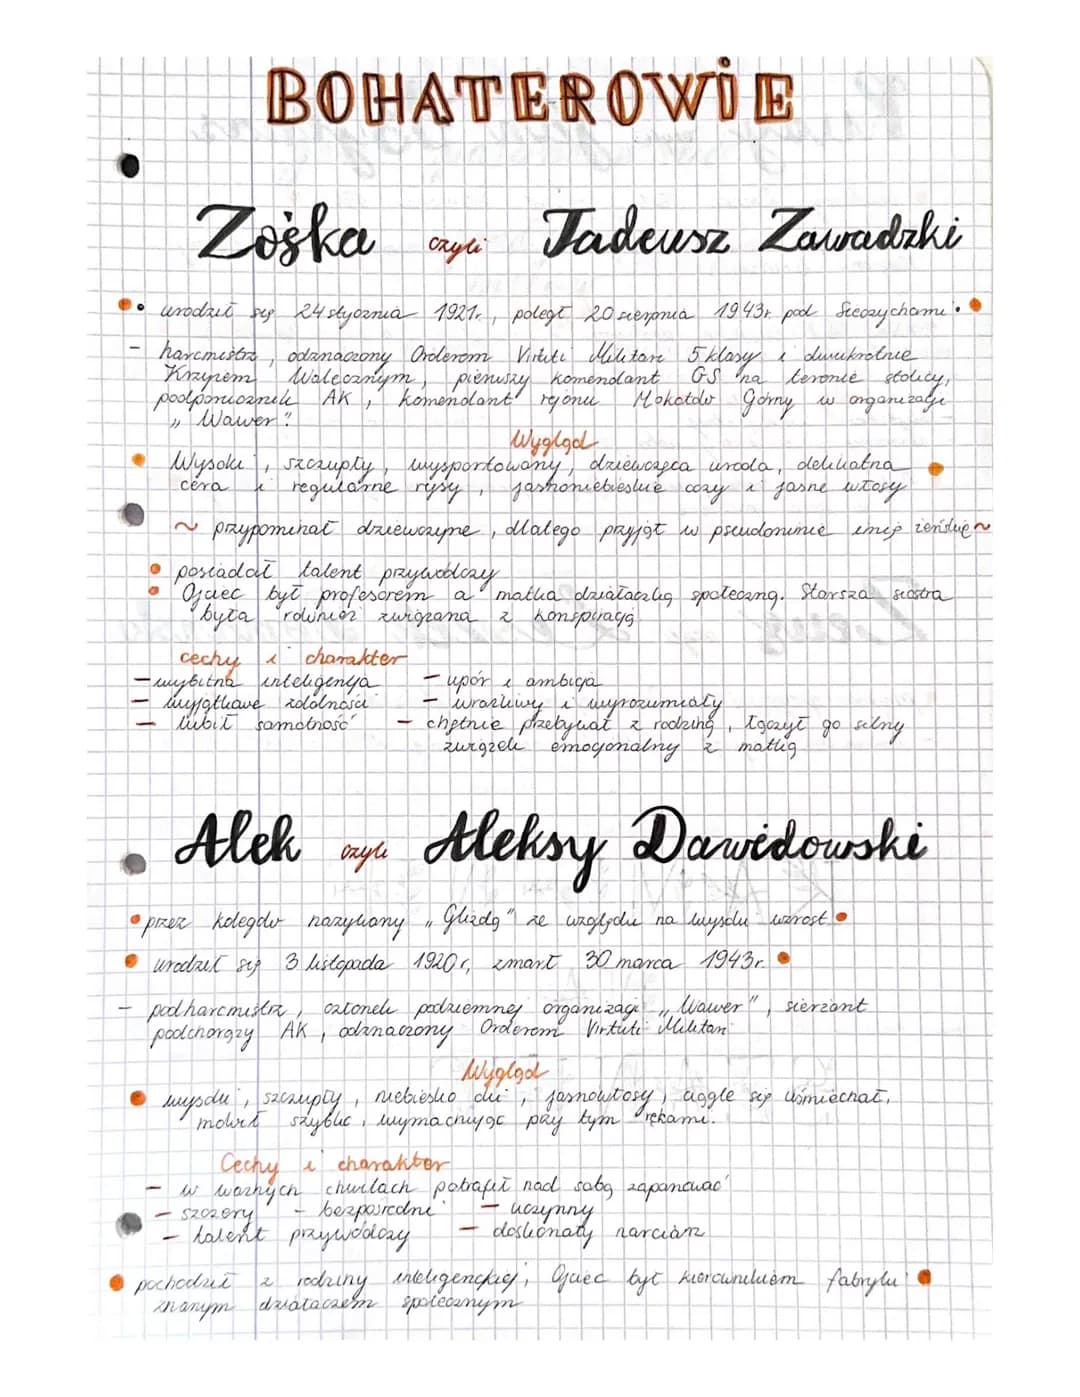 BOHATEROWIE
Zośka czyli Tadeusz Zawadzki
urodził się 24 stycznia 1921r., poległ 20 sierpnia 1943r pod Sieczychami.
- harcmistrz, odznaczony Orderem Virtuti Militari 5 klasy i dwukrotnie
Krzyżem Walecznym, pierwszy komendant GS na terenie stolicy,
podporucznik AK, komendant rejonu Mokotów Górny w organizacji
"Wawer".
Wygląd
Wysoki, szczupły, wysportowany, dziewczęca uroda, delikatna
cera i regularne rysy, jasnoniebieskie oczy i jasne włosy
~ przypominał dziewczynę, dlatego przyjął w pseudonimie imię żeńskie ~
posiadał talent przywódczy
Ojciec był profesorem a matka działaczką społeczną. Starsza siostra
była również związana z konspiracją
cechy i charakter
- wybitna inteligencja - upór i ambicja
- wyjątkowe zdolności - wrażliwy i wyrozumiały
- lubił samotność - chętnie przebywał z rodziną, łączył go silny
związek emocjonalny z matką
Alek czyli Aleksy Dawidowski
przez kolegów nazywany "Glizdą" ze względu na wysoki wzrost
urodził się 3 listopada 1920r, zmarł 30 marca 1943r.
- podharcmistrz, członek podziemnej organizacji "Wawer", sierżant
podchorąży AK, odznaczony Orderem Virtuti Militari
Wygląd
wysoki, szczupły, niebiesko oki, jasnowłosy, ciągle się uśmiechał,
mówił szybko, wymachując przy tym rękami.
Cechy i charakter
- w ważnych chwilach potrafił nad sobą zapanować
- szczery - bezpośredni - uczynny
- talent przywódczy - doskonały narciarz
pochodził z rodziny inteligenckiej, Ojciec był kierownikiem fabryki
znanym działaczem społecznym